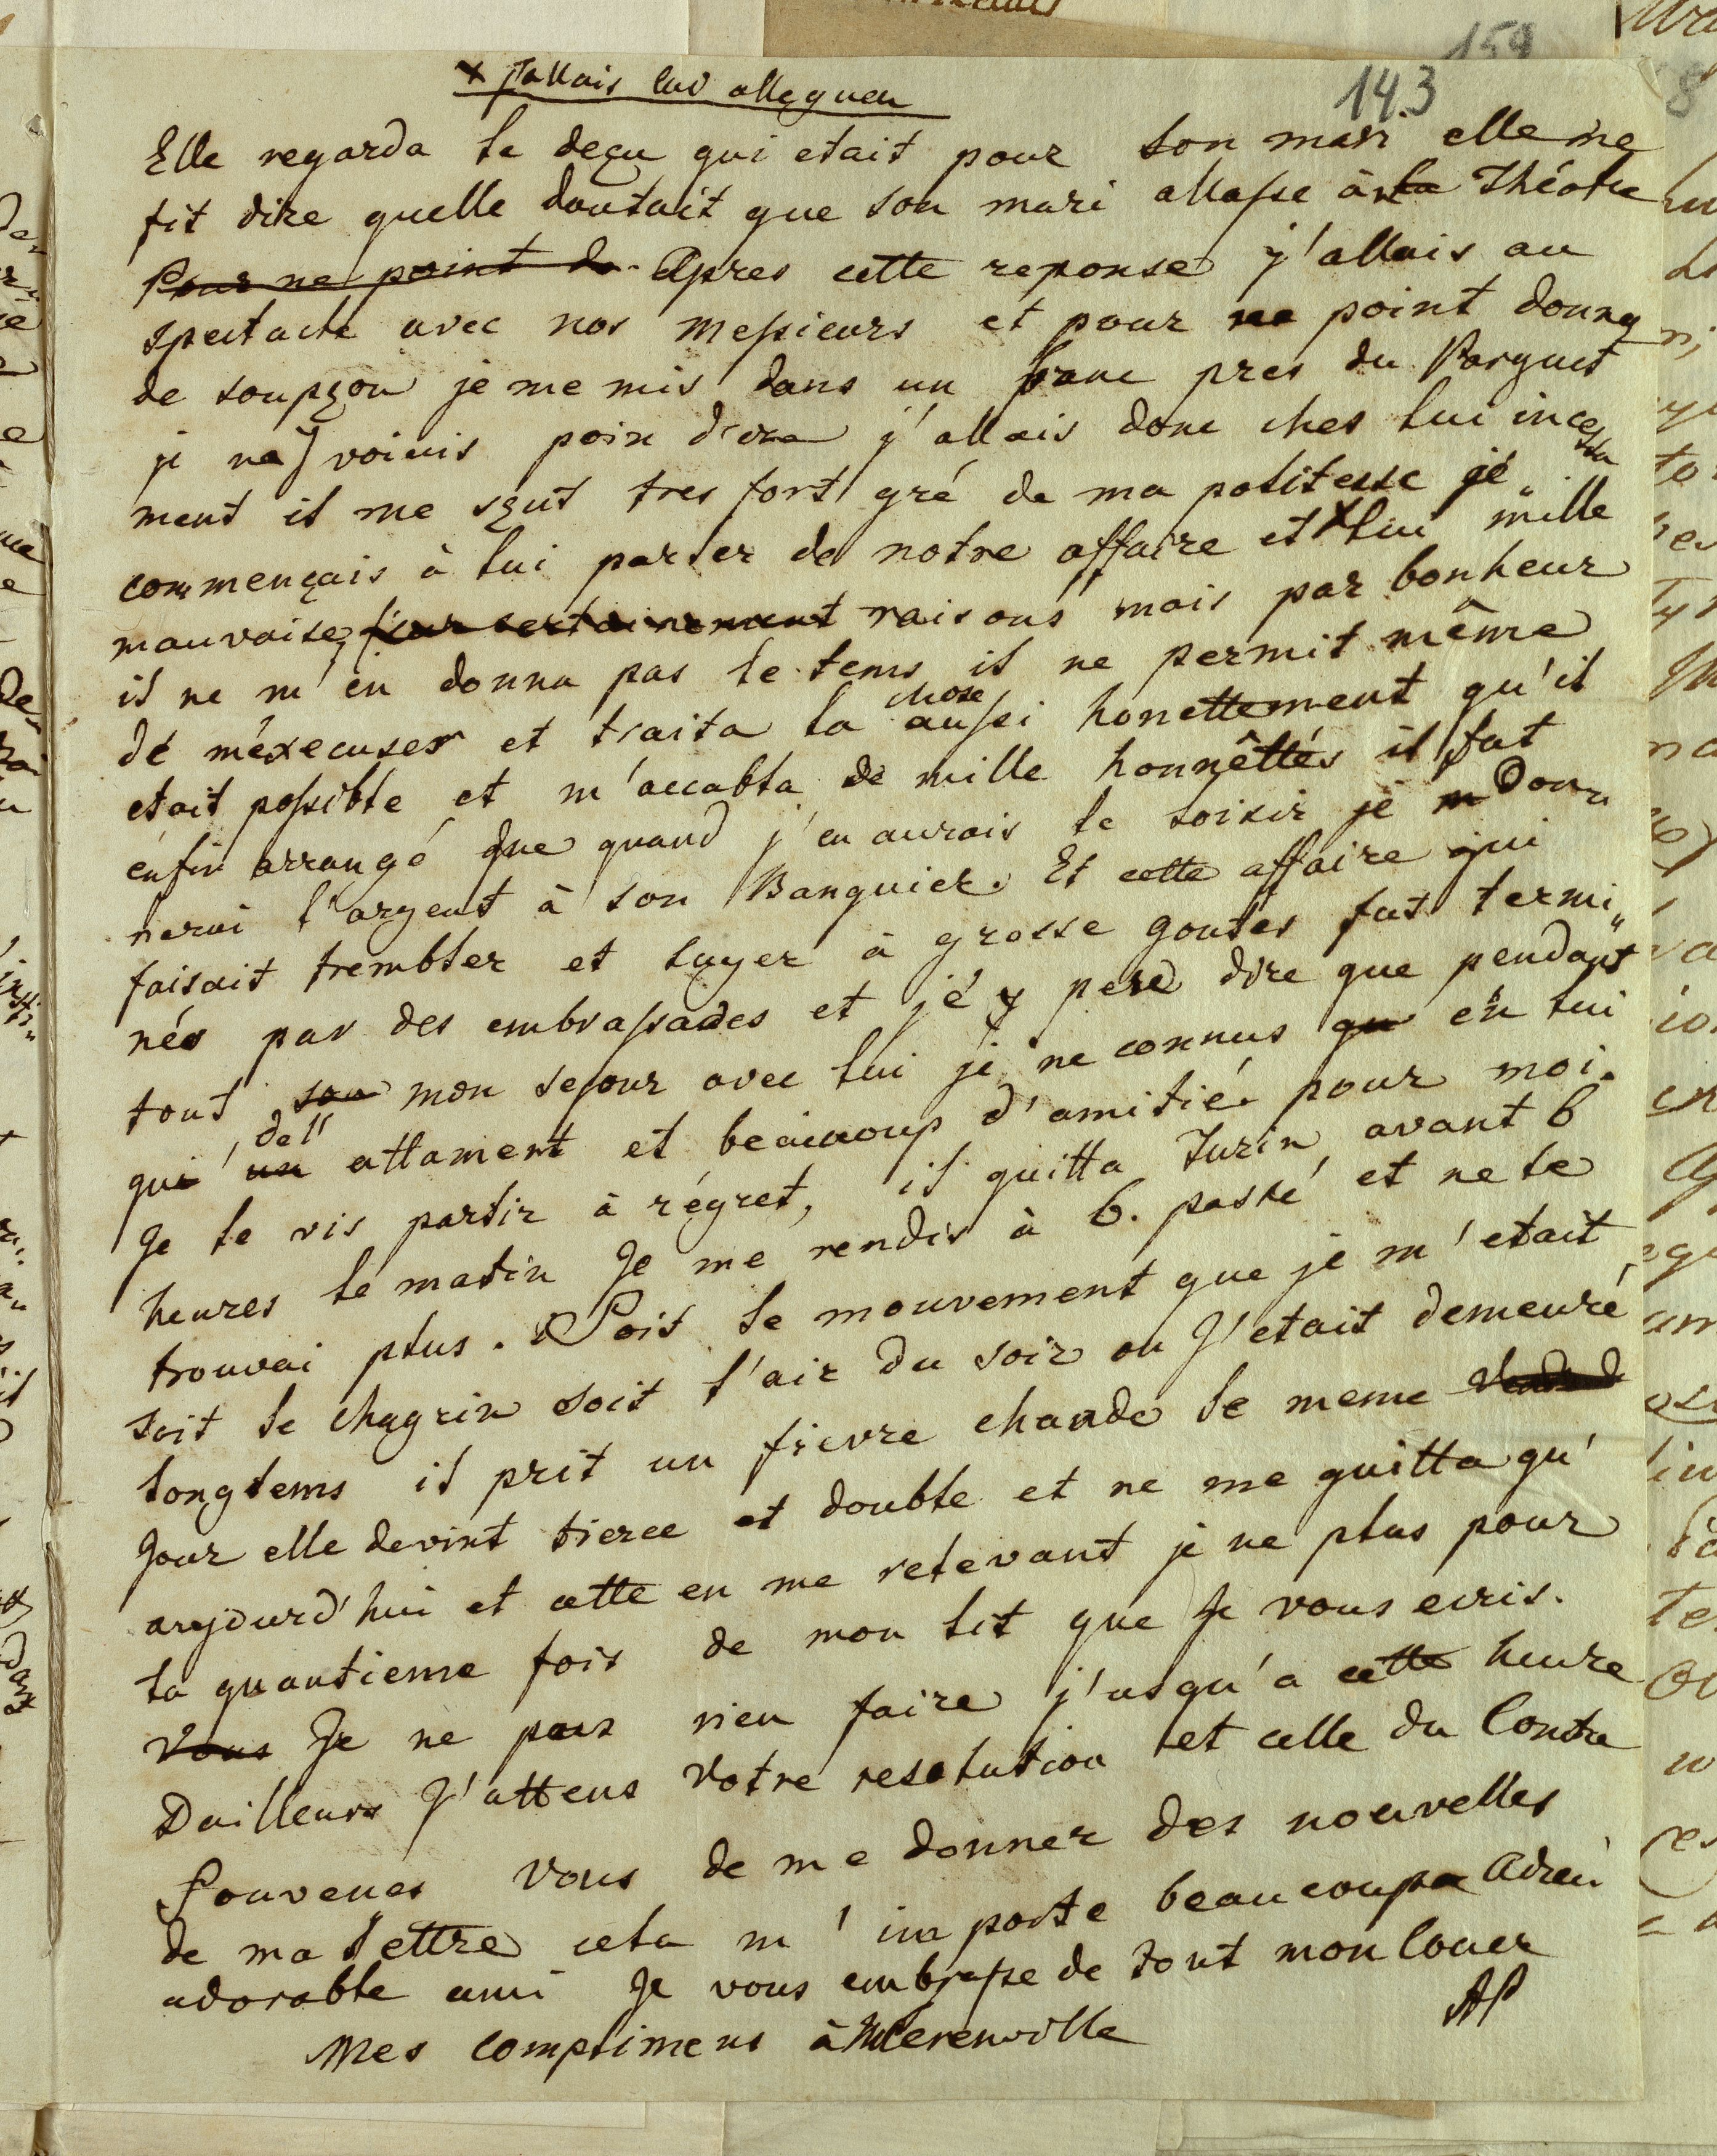 143
x j'allais lui alleguer
Elle regarda le deçu qui etait pour son mari elle me
fit dire quelle doutait que son mari allasse à la Théatre
Pour ne point de. Apres cette reponse j'allais au
spectacle avec nos messieurs et pour ne point donner
de soupçon je me mis dans un banc pres du Parquet
je ne voiuis poin j'allais donc ches lui incessa
ment il me sçut tres fort gré de ma politesse je
commençais à lui parler de notre affaire et x lui mille
mauvaise raisons mais par bonheur
il ne m'en donna pas le tems il ne permit même
dé méxecuser et traita la chose aussi honettement qu'il
etait possible et m'accabla de mille honnêttés il fut
enfin arrangé que quand j'en aurais le loisir je don„
nerai l'argent à son Banquier. Et cette affaire qui
faisait trembler et suyer à grosse goutes fut termi„
née par des embrassades et jé y pere dire que pendant
tout son mon sejour avec lui je ne connus qu en lui
qui un de l' attament et beaucoup d'amitié pour moi.
Je le vis partir à régret, il quitta Turin avant 6
heures le matin Je me rendis à 6. passé et ne le
trouvai plus. Soit le mouvement que je m'etait
soit le chagrin soit l'air du soir ou J'etait demeuré
longtems il prit un fievre chaude le meme
Jour elle devint tierce et double et ne me quitta qu'
aujourd'hui et cette en me relevant je ne plus pour
la quantieme fois de mon lit que Je vous ecris.
Vous Je ne peux rien faire j'usqu'a cette heure
Dailleurs J'attens Votre resolution et celle du Contre
Souvenes Vous de me donner des nouvelles
de ma lettre cela m'importe beaucoup Adieu
adorable ami Je vous embrasse de tout mon Couer
AP
Mes complimens à Merenville